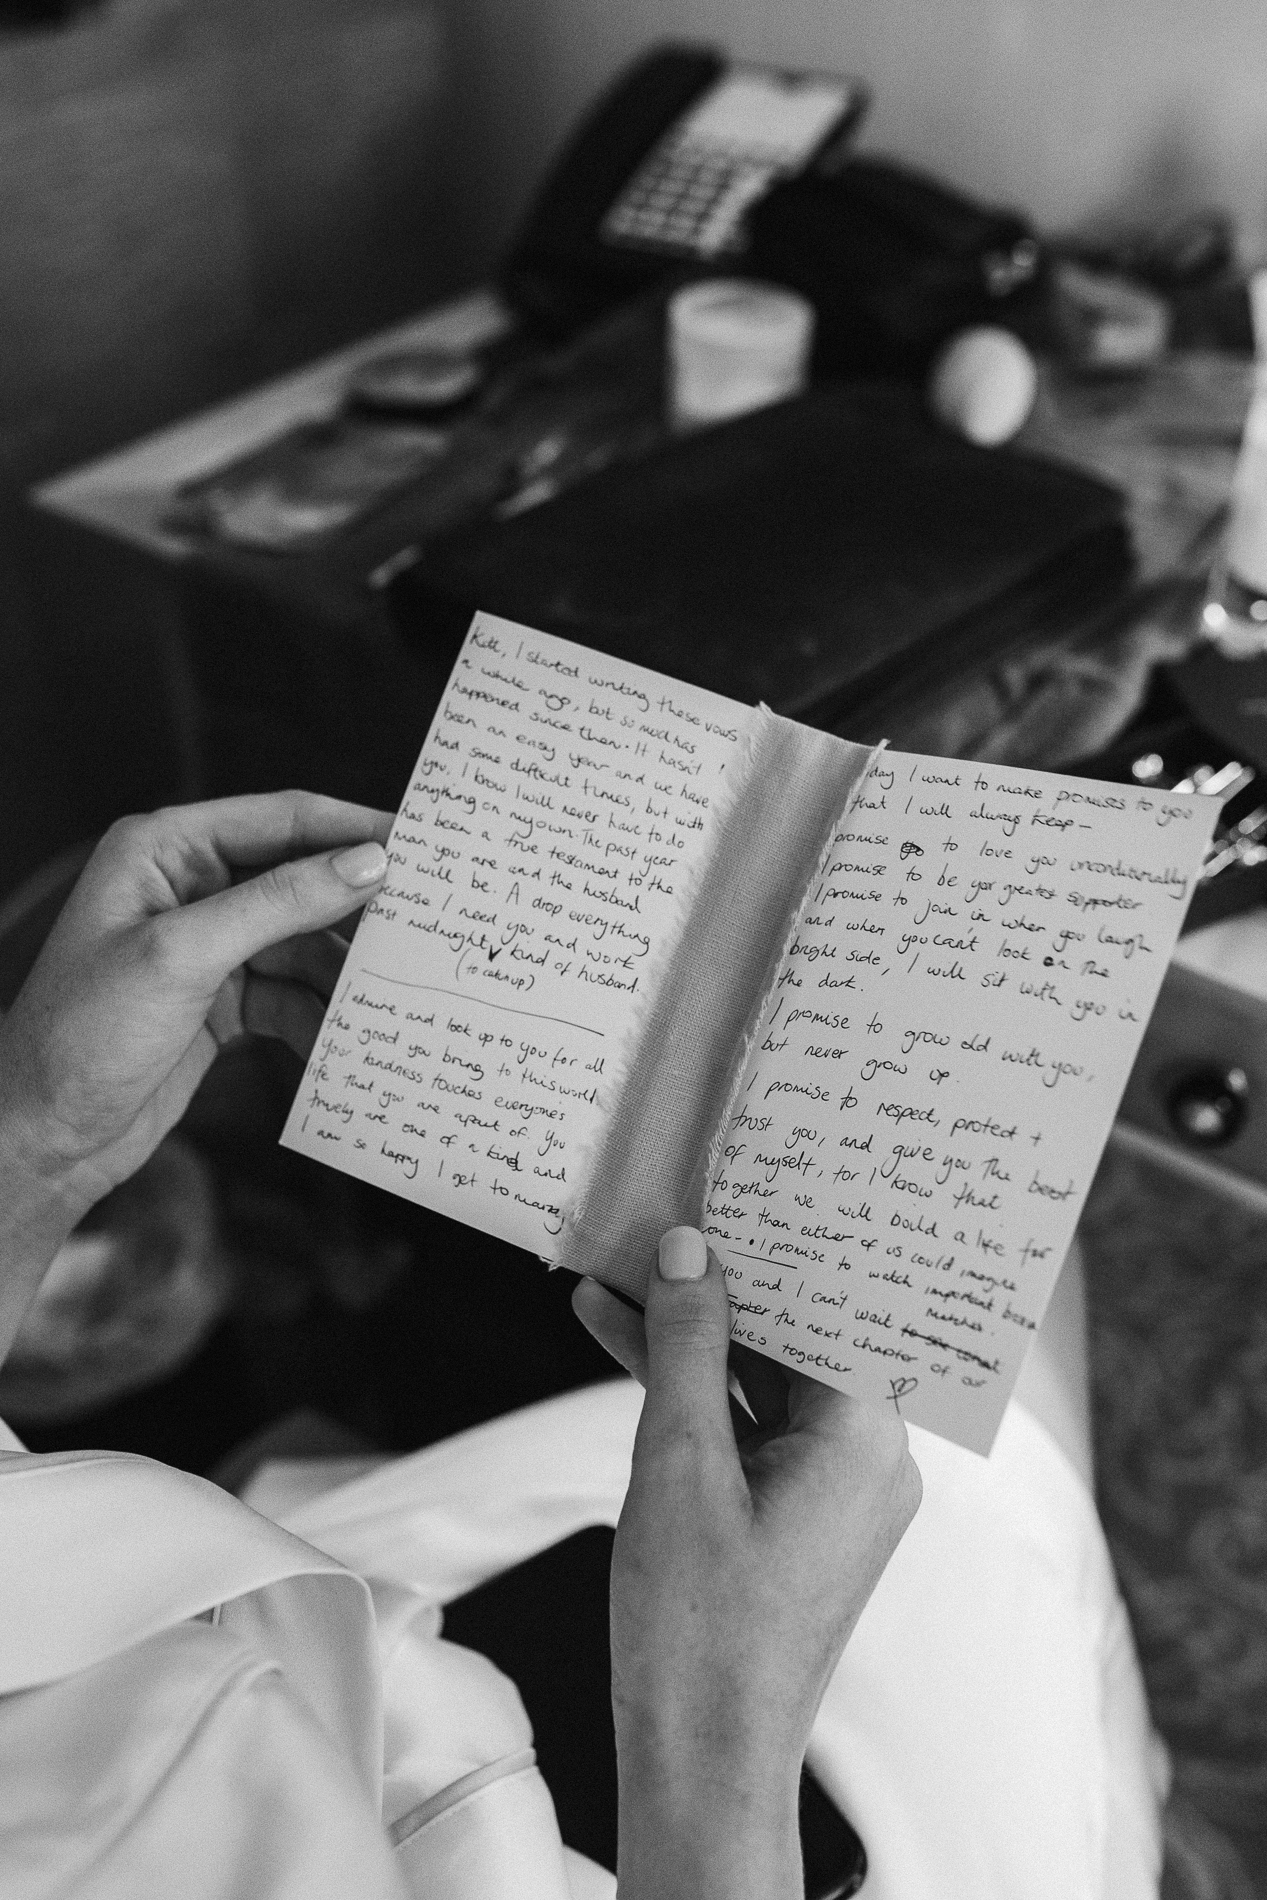 I started writing these vows
a while ago, but so much has
happened since then. It hasn't
been an easy year and we have
had some difficult times, but with
you, I know I will never have to do
anything on my own. The past year
has been a true testament to the
man you are and the husband
you will be. A drop everything
because I need you and work
past midnight kind of husband.
(to catch up)
I admire and look up to you for all
the good you bring to this world.
Your kindness touches everyone's
life that you are apart of. You
truely are one of a kind and
I am so happy I get to marry
day I want to make promises to you
that I will always keep-
promise to love you unconditionally
I promise to be your greatest supporter
I promise to join in when you laugh
and when you can't look on the
bright side, I will sit with you in
the dark.
I promise to grow old with you,
but never grow up.
I promise to respect, protect +
trust you, and give you the best
of myself, for I know that
together we will build a life for
better than either of us could imagine
one- • I promise to watch important
matches.
you and I can't wait
the next chapter of our
lives together